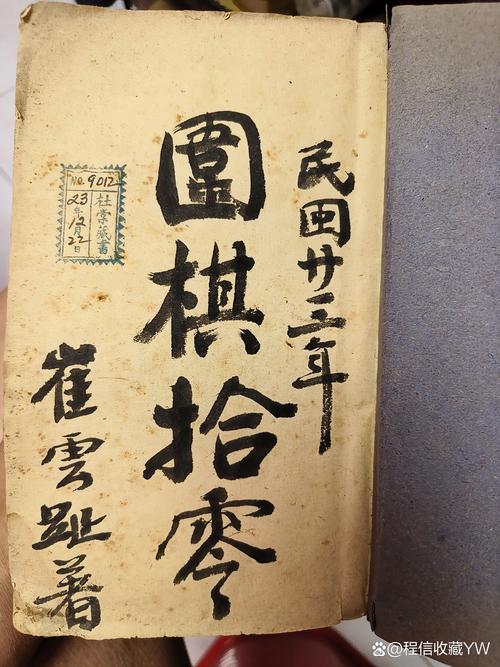 民国廿三年
圍棋拾零
崔雲趾著
No. 9012
23年12月22日
杜棠藏書
@程信收藏YW